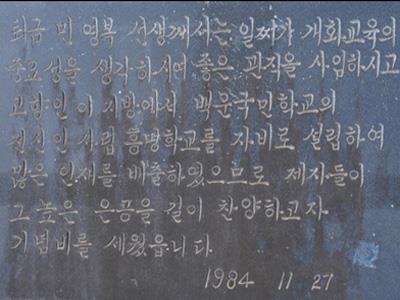 퇴금 민 영복 선생께서는 일찌기 개화교육의
중요성을 생각하시여 좋은 관직을 사임하시고
고향인 이 지방에서 백운국민학교의
전신인 사립 흥명학교를 자비로 설립하여
많은 인재를 배출하였으므로 제자들이
그 높은 은공을 길이 찬양하고자
기념비를 세웠읍니다
1984 11 27